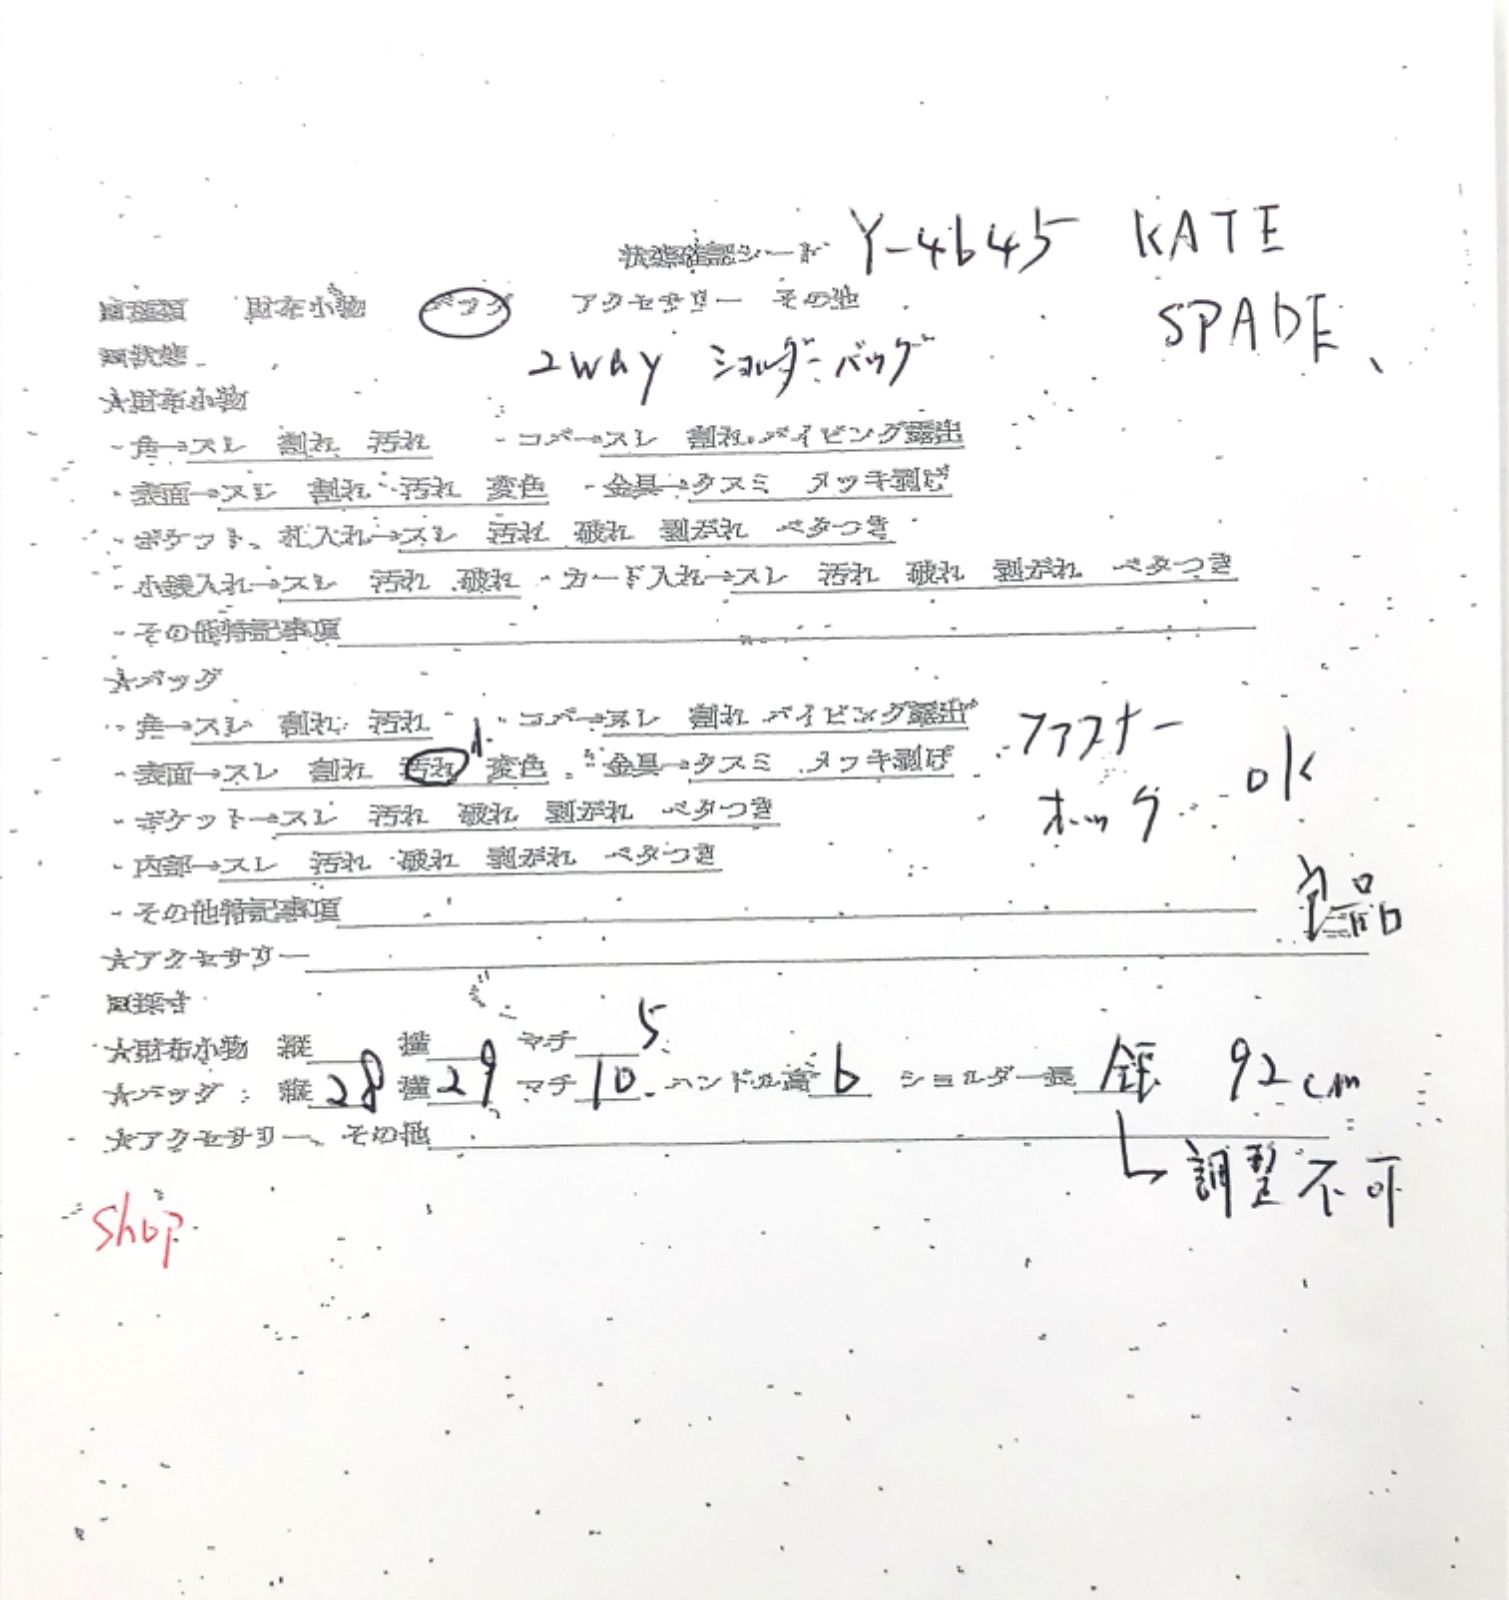 状態確認シート Y-4645 KATE
SPADE、
■種類 財布小物 バッグ アクセサリー その他
■状態
2way ショルダーバッグ
★財布小物
・角→スレ 割れ 汚れ ・コバ→スレ 割れ パイピング露出
・表面→スレ 割れ 汚れ 変色 ・金具→クスミ メッキ剥げ
・ポケット、札入れ→スレ 汚れ 破れ 剥がれ ベタつき
・小銭入れ→スレ 汚れ 破れ ・カード入れ→スレ 汚れ 破れ 剥がれ ベタつき
・その他特記事項
★バッグ
・角→スレ 割れ 汚れ ・コバ→スレ 割れ パイピング露出
・表面→スレ 割れ 汚れ 小 変色 ・金具→クスミ メッキ剥げ
ファスナー
ホック ok
・ポケット→スレ 汚れ 破れ 剥がれ ベタつき
・内部→スレ 汚れ 破れ 剥がれ ベタつき
・その他特記事項
★アクセサリー
■採寸
★財布小物 縦 横 マチ 5
★バッグ：縦 28 横 29 マチ 10 ハンドル高 6 ショルダー長 92cm
★アクセサリー、その他
調整不可
Shop